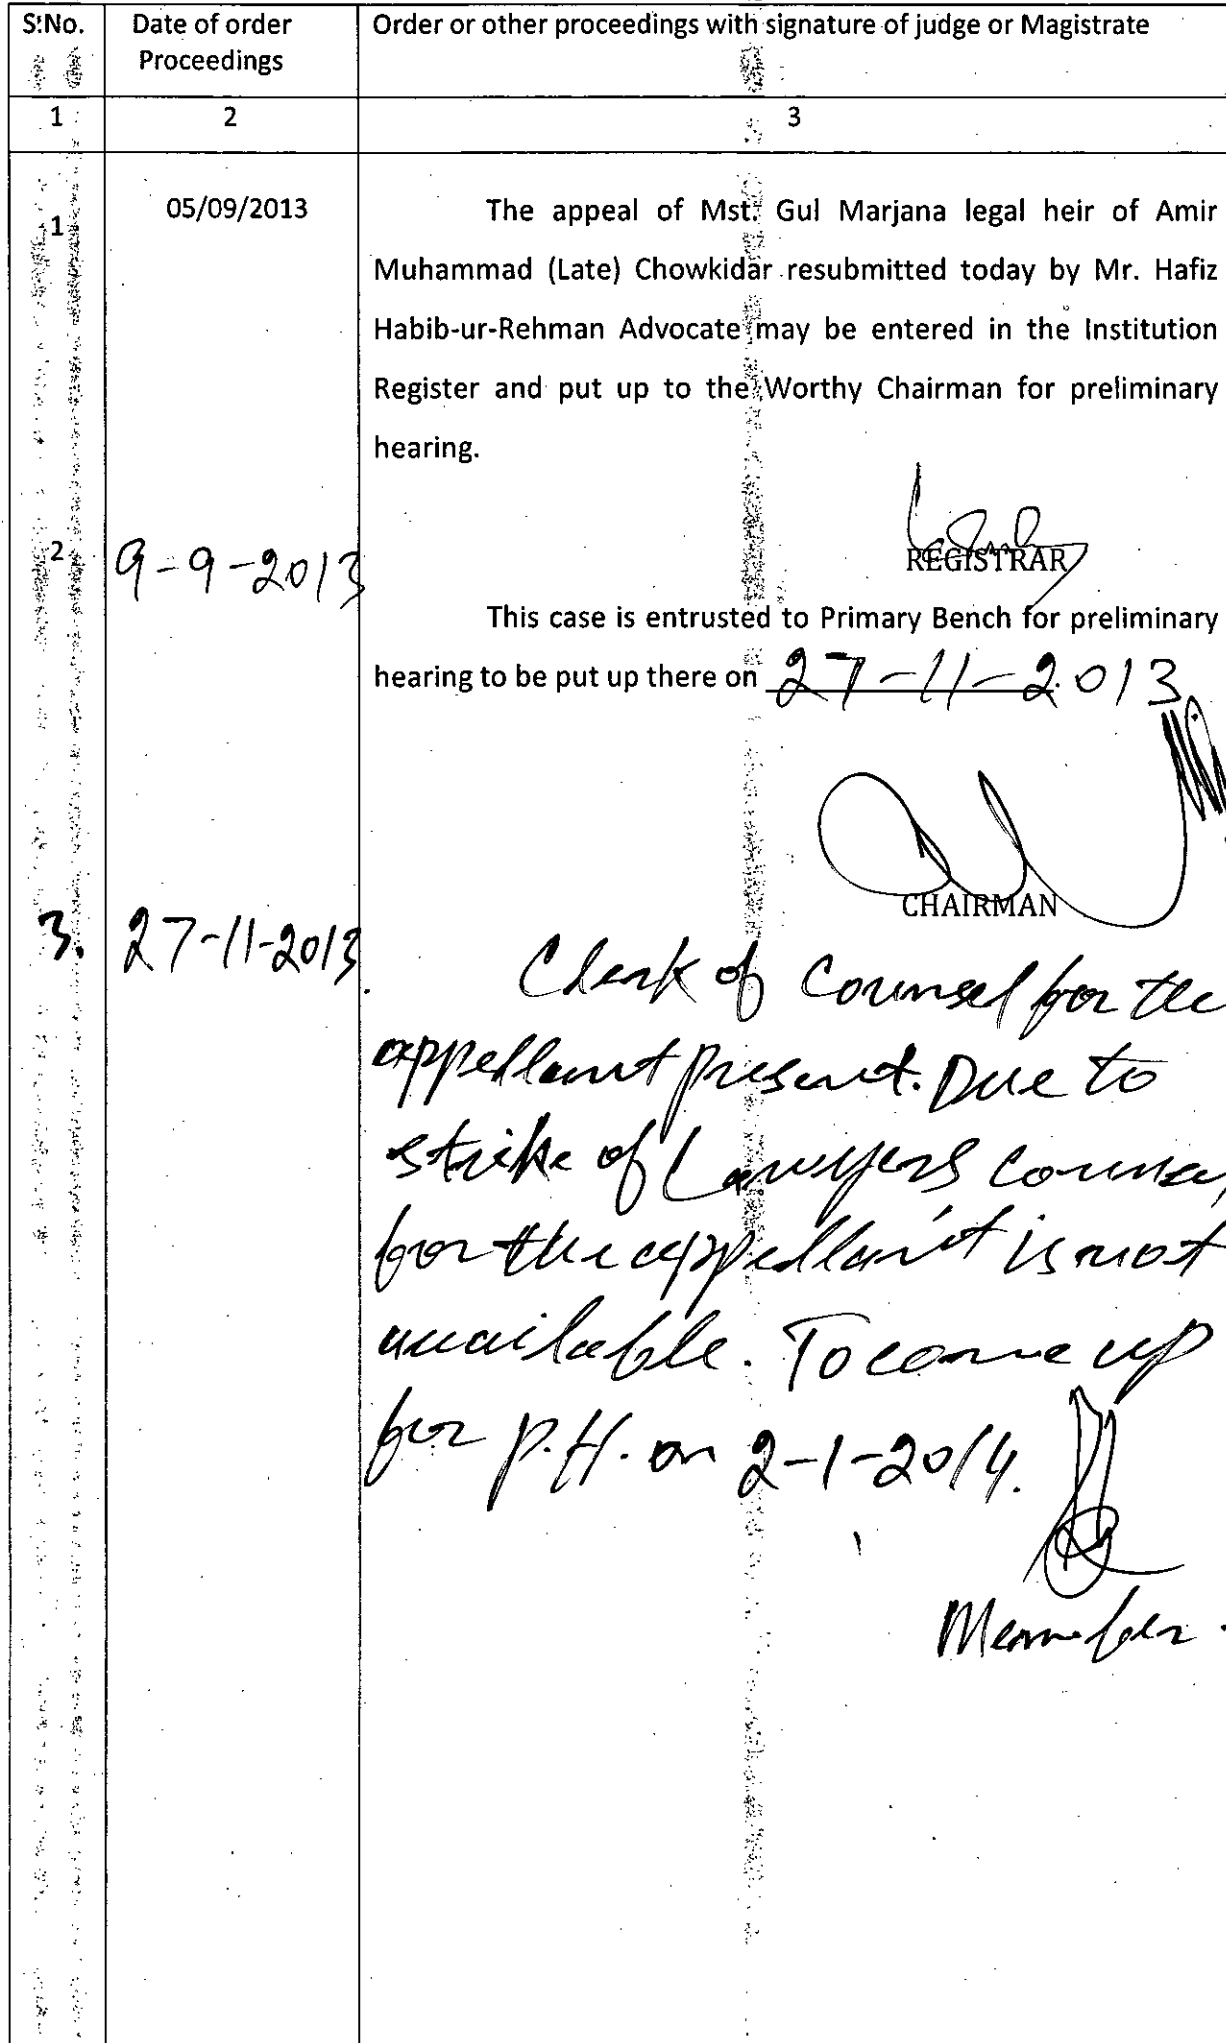 S.No. Date of order Proceedings Order or other proceedings with signature of judge or Magistrate
1 2 3
1 05/09/2013 The appeal of Mst. Gul Marjana legal heir of Amir
Muhammad (Late) Chowkidar resubmitted today by Mr. Hafiz
Habib-ur-Rehman Advocate may be entered in the Institution
Register and put up to the Worthy Chairman for preliminary
hearing.
REGISTRAR
2 9-9-2013
This case is entrusted to Primary Bench for preliminary
hearing to be put up there on 27-11-2013
CHAIRMAN
3. 27-11-2013. Clerk of Counsel for the
appellant present. Due to
strike of Lawyers counsel
for the appellant is not
available. To come up
for P.H. on 2-1-2014.
Member.